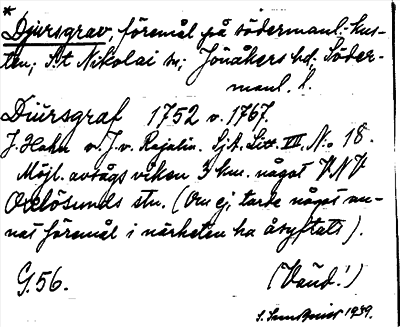 *
Djursgrav, föremål på södermanl. kus-
ten; S:t Nikolai sn; Jönåkers hd; Söder-
manl. l.
Diursgraf 1752 v. 1767.
J. Hahn v. J. v. Rajalin. Sjk. Litt. VII, No 18.
Möjl. avsågs viken 3 km. något V.N.V.
Oxelösunds stn. (Om ej, torde något an-
nat föremål i närheten ha åsyftats).
G. 56. (Vänd!)
S. 1939.